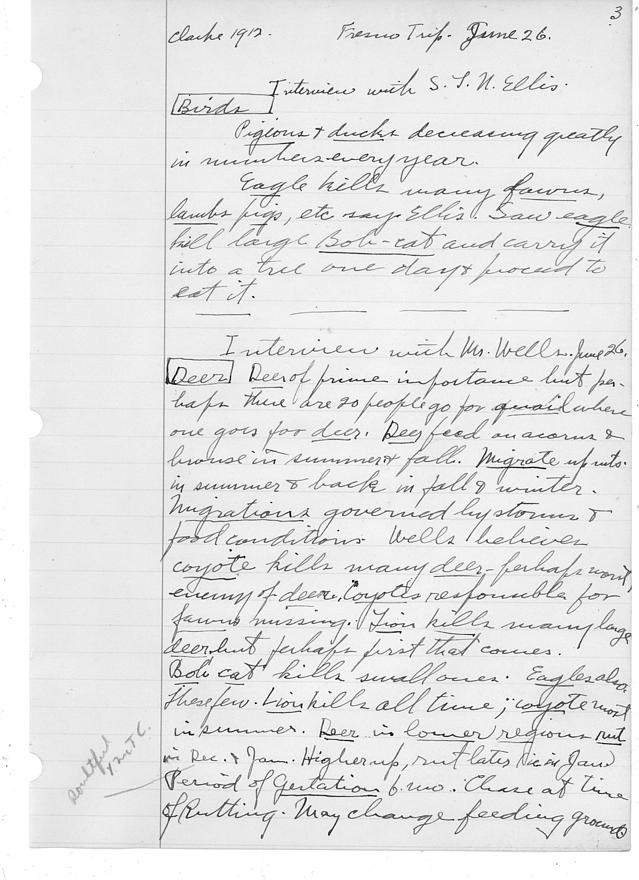 3
Clarke 1912. Fresno Trip. June 26.
Interview with S. L. N. Ellis.
Birds
Pigeons & ducks decreasing greatly
in numbers every year.
Eagle kills many fawns,
lambs pigs, etc says Ellis. Saw eagle
kill large Bob-cat and carry it
into a tree one day & proceed to
eat it.
Interview with Mr. Wells. June 26.
Deer Deer of prime importance but per-
haps there are 20 people go for quail where
one goes for deer. Deer feed on acorns &
browse in summer & fall. Migrate up mts.
in summer & back in fall & winter.
Migrations governed by storms &
food conditions. Wells believes
coyote kills many deer - perhaps worst
enemy of deer. Coyotes responsible for
fawns missing. Lion kills many large
deer but perhaps first that comes.
Bob cat kills small ones. Eagles also
these few. Lion kills all time; coyote most
in summer. Deer in lower regions rut
in Dec. & Jan. Higher up, rut later in Jan
Period of Gestation 6 mo. Chase at time
of Rutting. May change feeding grounds
Doubtful